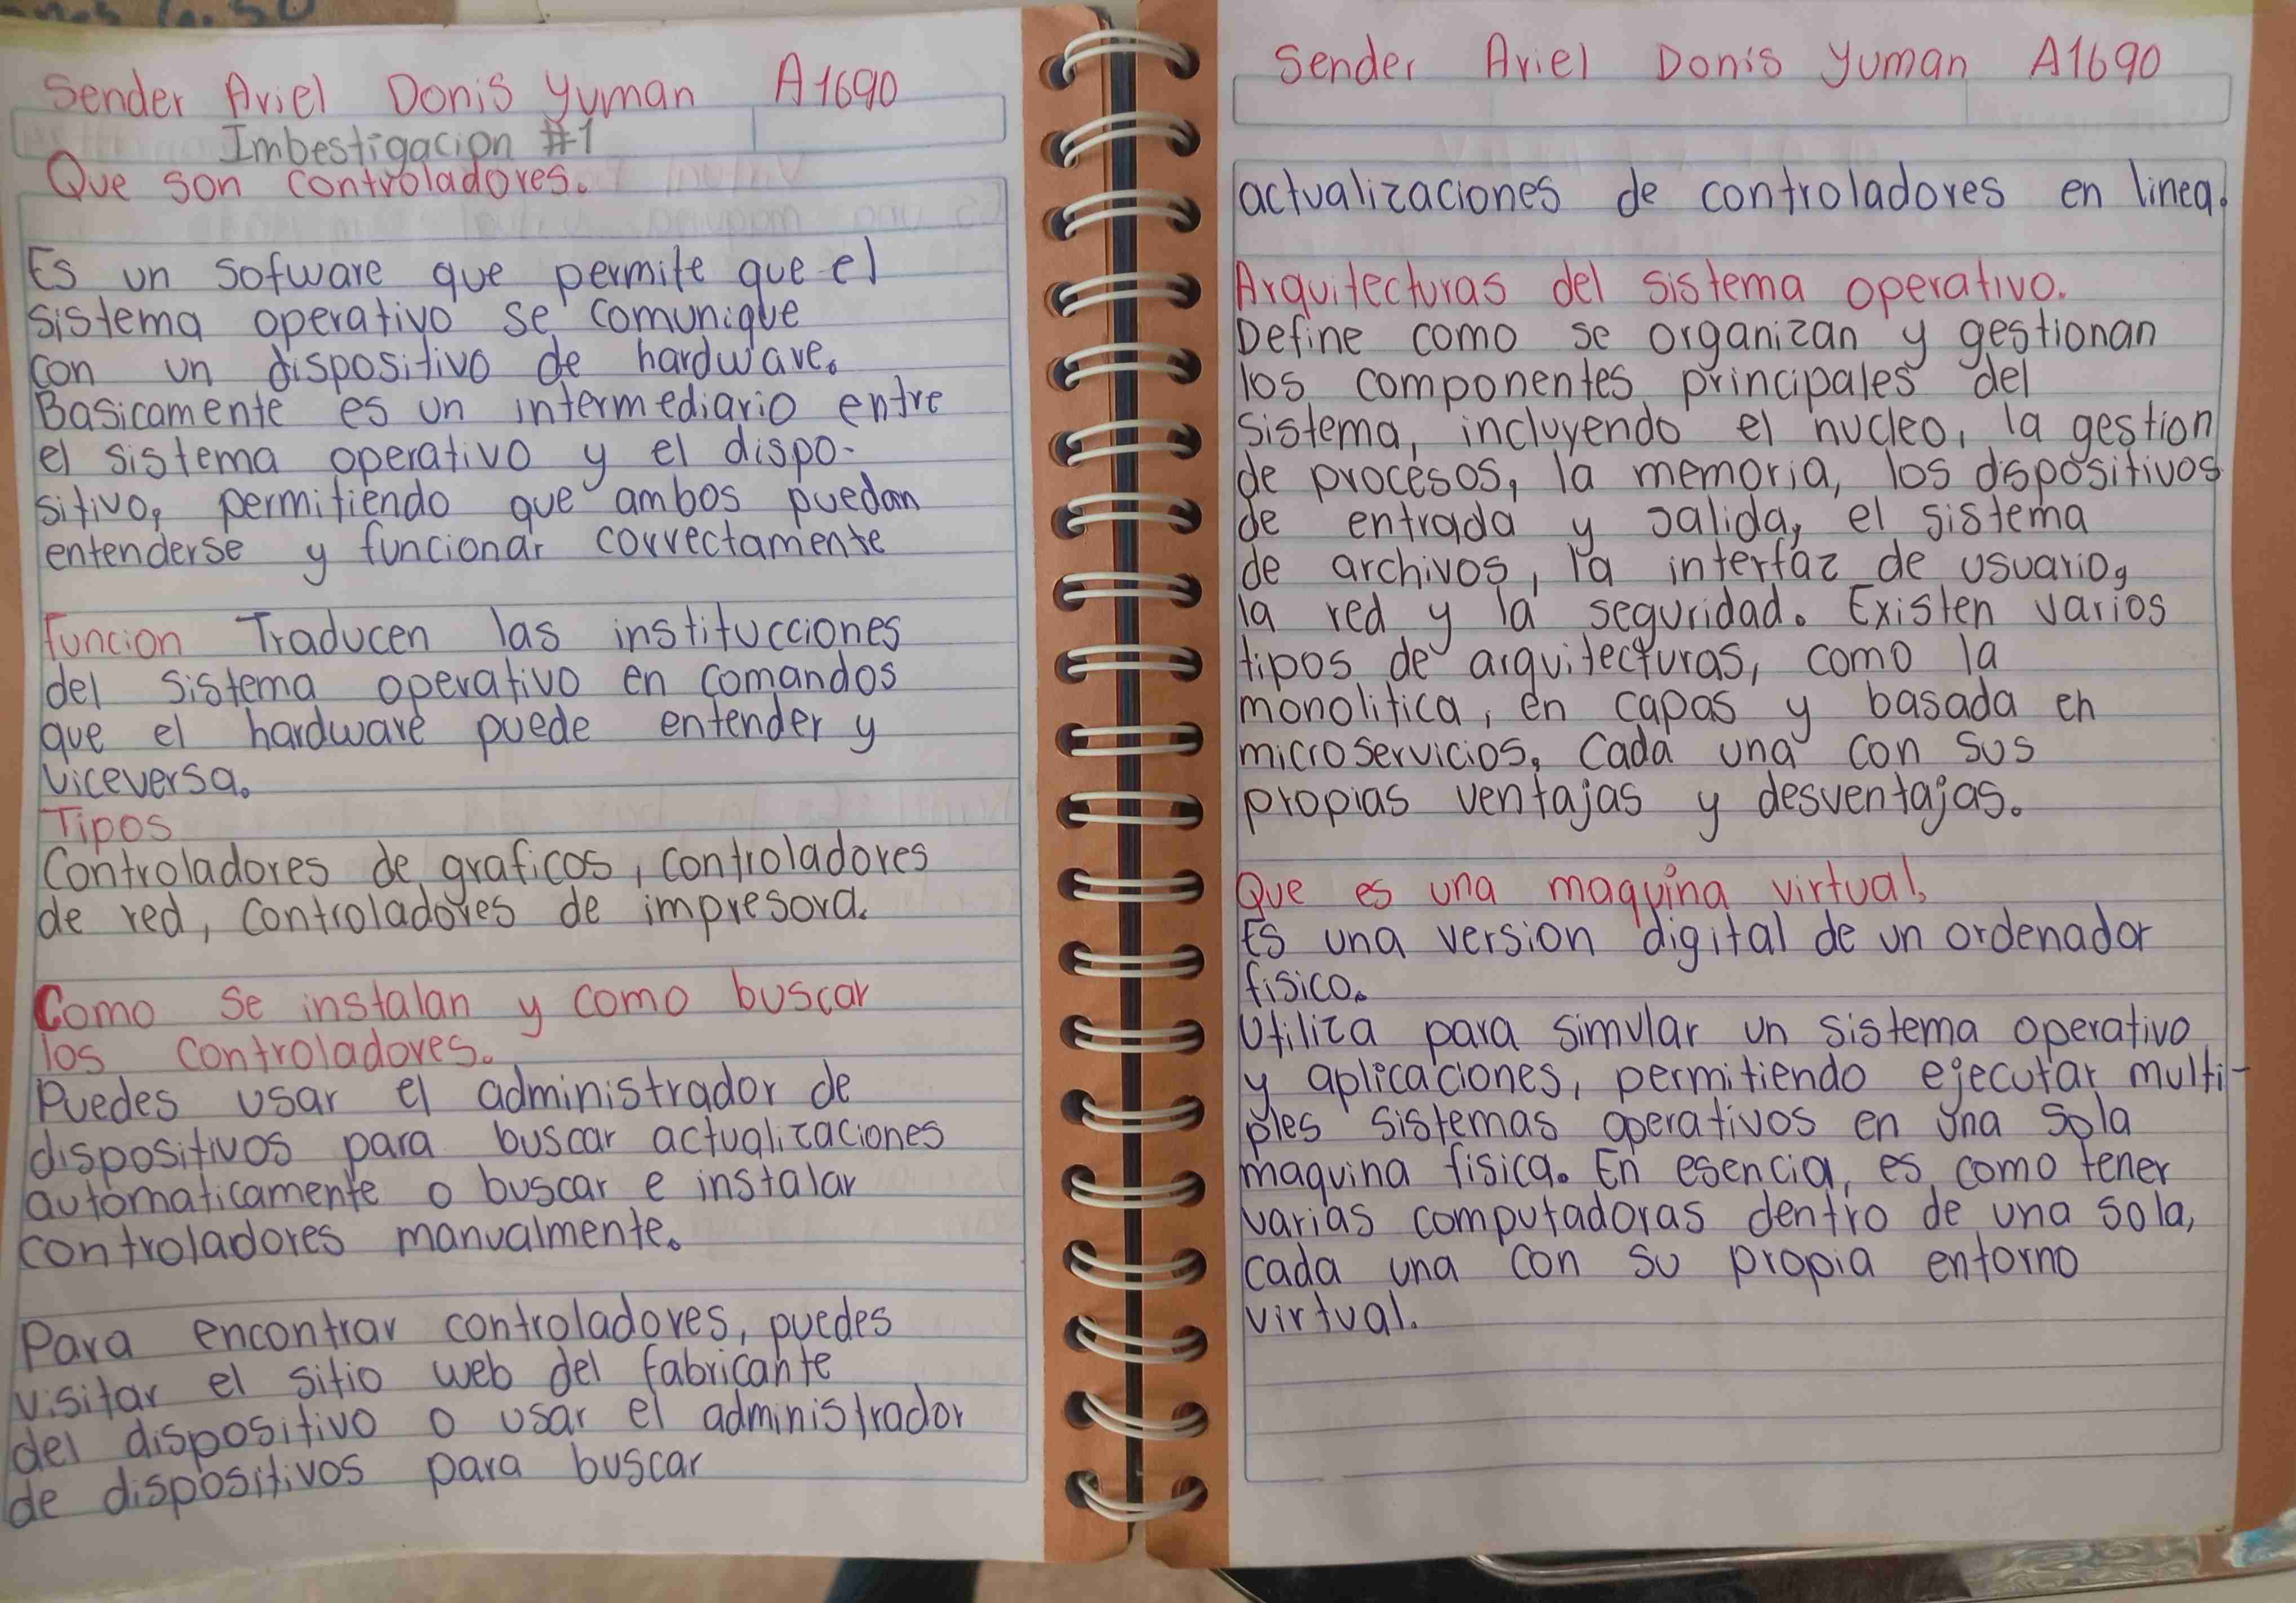 Sender Ariel Donis Yuman A1690
Imbestigacion #1
Que son controladores.
Es un sofware que permite que el
sistema operativo se comunique
con un dispositivo de hardware.
Basicamente es un intermediario entre
el sistema operativo y el dispo-
sitivo, permitiendo que ambos puedan
entenderse y funcionar correctamente
funcion Traducen las institucciones
del sistema operativo en comandos
que el hardware puede entender y
viceversa.
Tipos
Controladores de graficos, controladores
de red, controladores de impresora.
Como se instalan y como buscar
los controladores.
Puedes usar el administrador de
dispositivos para buscar actualizaciones
automaticamente o buscar e instalar
controladores manualmente.
Para encontrar controladores, puedes
visitar el sitio web del fabricante
del dispositivo o usar el administrador
de dispositivos para buscar
Sender Ariel Donis Yuman A1690
actualizaciones de controladores en linea.
Arquitecturas del sistema operativo.
Define como se organizan y gestionan
los componentes principales del
sistema, incluyendo el nucleo, la gestion
de procesos, la memoria, los dispositivos
de entrada y salida, el sistema
de archivos, la interfaz de usuario,
la red y la seguridad. Existen varios
tipos de arquitecturas, como la
monolitica, en capas y basada en
microservicios, Cada una con sus
propias ventajas y desventajas.
Que es una maquina virtual.
Es una version digital de un ordenador
fisico.
Utiliza para simular un sistema operativo
y aplicaciones, permitiendo ejecutar multi-
ples sistemas operativos en una sola
maquina fisica. En esencia, es como tener
varias computadoras dentro de una sola,
cada una con su propia entorno
virtual.